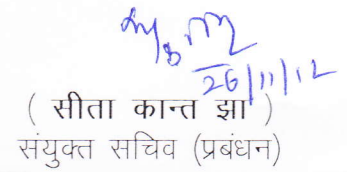 26/11/12
( सीता कान्त झा )
संयुक्त सचिव (प्रबंधन)